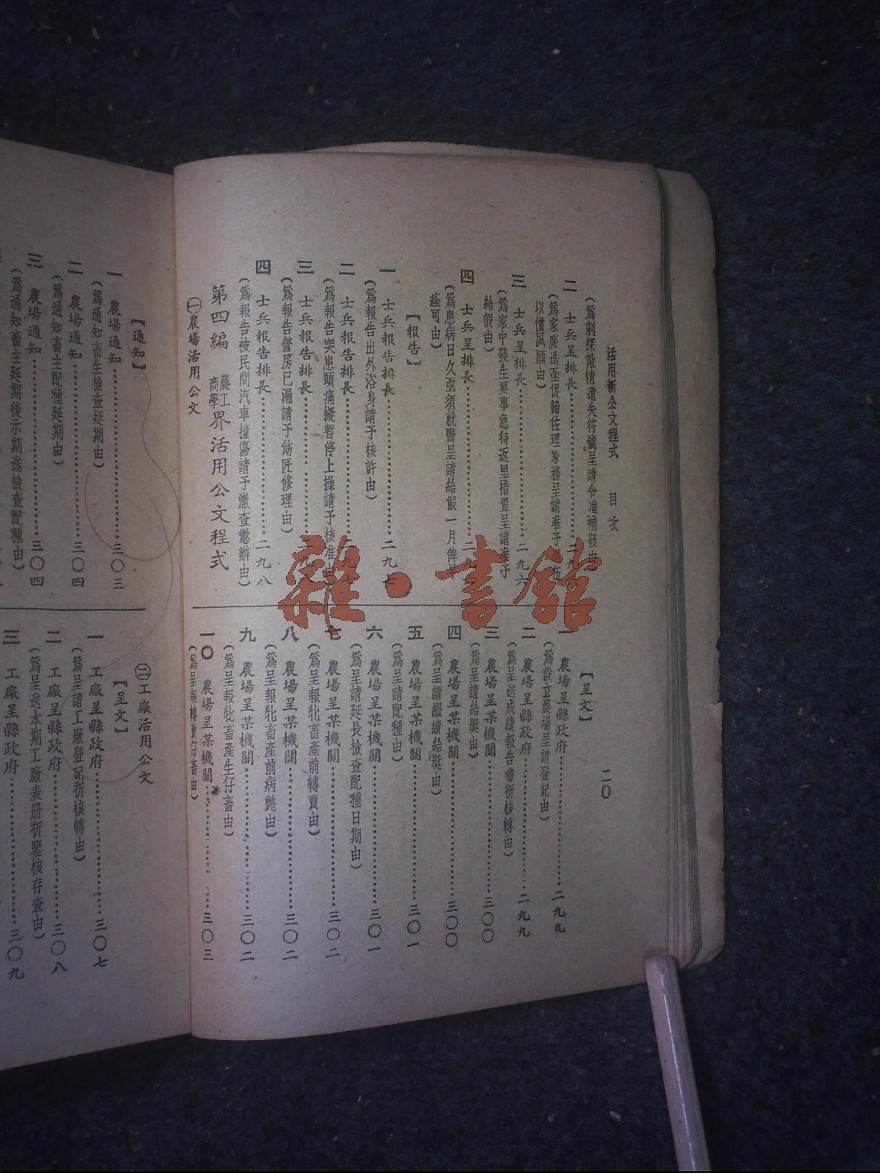 活用新公文程式 目次
二〇
(為刺探敵情遺失符號呈請令准補發由)
二 士兵呈排長
(為家庭迭函促歸佐理家務呈請准予
以償夙願由)
三 士兵呈排長 二九六
(為家中發生要事急待返里措置呈請准予
給假由)
四 士兵呈排長
(為患病日久亟須就醫呈請給假一月俾
痊可由)
【報告】
一 士兵報告排長 二九七
(為報告出外浴身請予核許由)
二 士兵報告排長
(為報告突患頭痛擬暫停上操請予核准由)
三 士兵報告排長
(為報告營房已漏請予飭匠修理由)
四 士兵報告排長 二九八
(為報告被民間汽車撞傷請予澈查懲辦由)
第四編 農工商學界活用公文程式
㊀農場活用公文
【呈文】
一 農場呈縣政府 二九九
(為設立農場呈請登記由)
二 農場呈縣政府 二九九
(為呈送成績報告書祈核轉由)
三 農場呈縣政府 三〇〇
(為呈請給獎由)
四 農場呈縣政府 三〇〇
(為呈請繼續給獎由)
五 農場呈某機關 三〇一
(為呈請配種由)
六 農場呈某機關 三〇一
(為呈請延長檢查配種日期由)
七 農場呈某機關 三〇二
(為呈報牝畜產前轉賣由)
八 農場呈某機關 三〇二
(為呈報牝畜產前病斃由)
九 農場呈某機關 三〇二
(為呈報牝畜產生仔畜由)
一〇 農場呈某機關 三〇三
(為呈報轉賣仔畜由)
【通知】
一 農場通知 三〇三
(為通知畜生檢查延期由)
二 農場通知 三〇四
(為通知畜主配種延期由)
三 農場通知 三〇四
(為通知畜主延期後示期送檢查配種由)
㊁工廠活用公文
【呈文】
一 工廠呈縣政府 三〇七
(為呈請工廠登記祈核轉由)
二 工廠呈縣政府 三〇八
(為呈送本期工廠表冊祈鑒核存查由)
三 工廠呈縣政府 三〇九
雜·書館